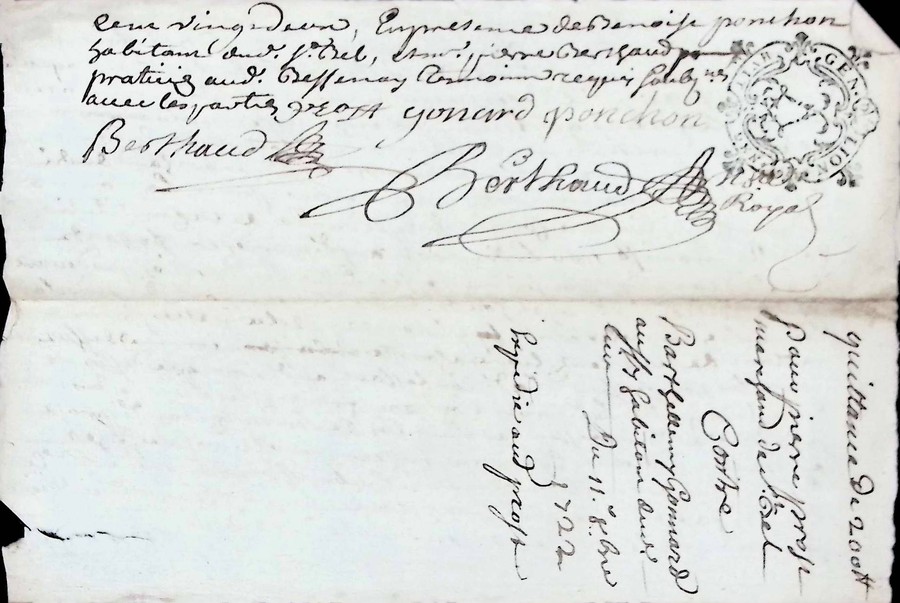 cens vingt deux, En presence de Benoist ponchon
habitant dud. St. Bel, et mr. pierre Berthaud
praticien aud. Bessenay temoins requis soubz.nez
avec les parties gonard ponchon
Berthaud
Berthaud
Royal
GEN LION
quittance de 200 tt
pour pierre prost
marchand de St. Bel
Contre
Barthellemy Gonnard
aussy habitant dud.
lieu Du 11.e 8.bre
1722
Expedié aud prost